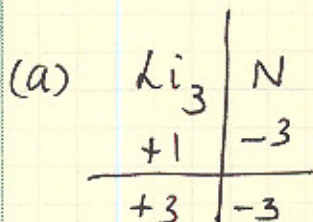 (a) Li₃ N
+1 -3
+3 -3